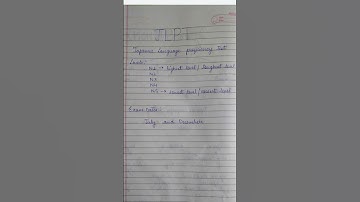 JLPT
Japanese Language proficiency Test
Levels:
N1 → highest level / toughest level
N2
N3
N4
N5 → easiest level / lowest level
Exam date:
July and December